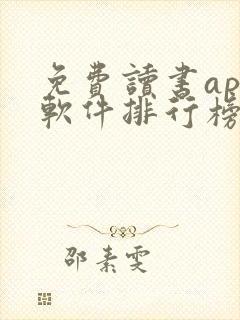 免費讀書ap
軟件排行榜
邵素雯